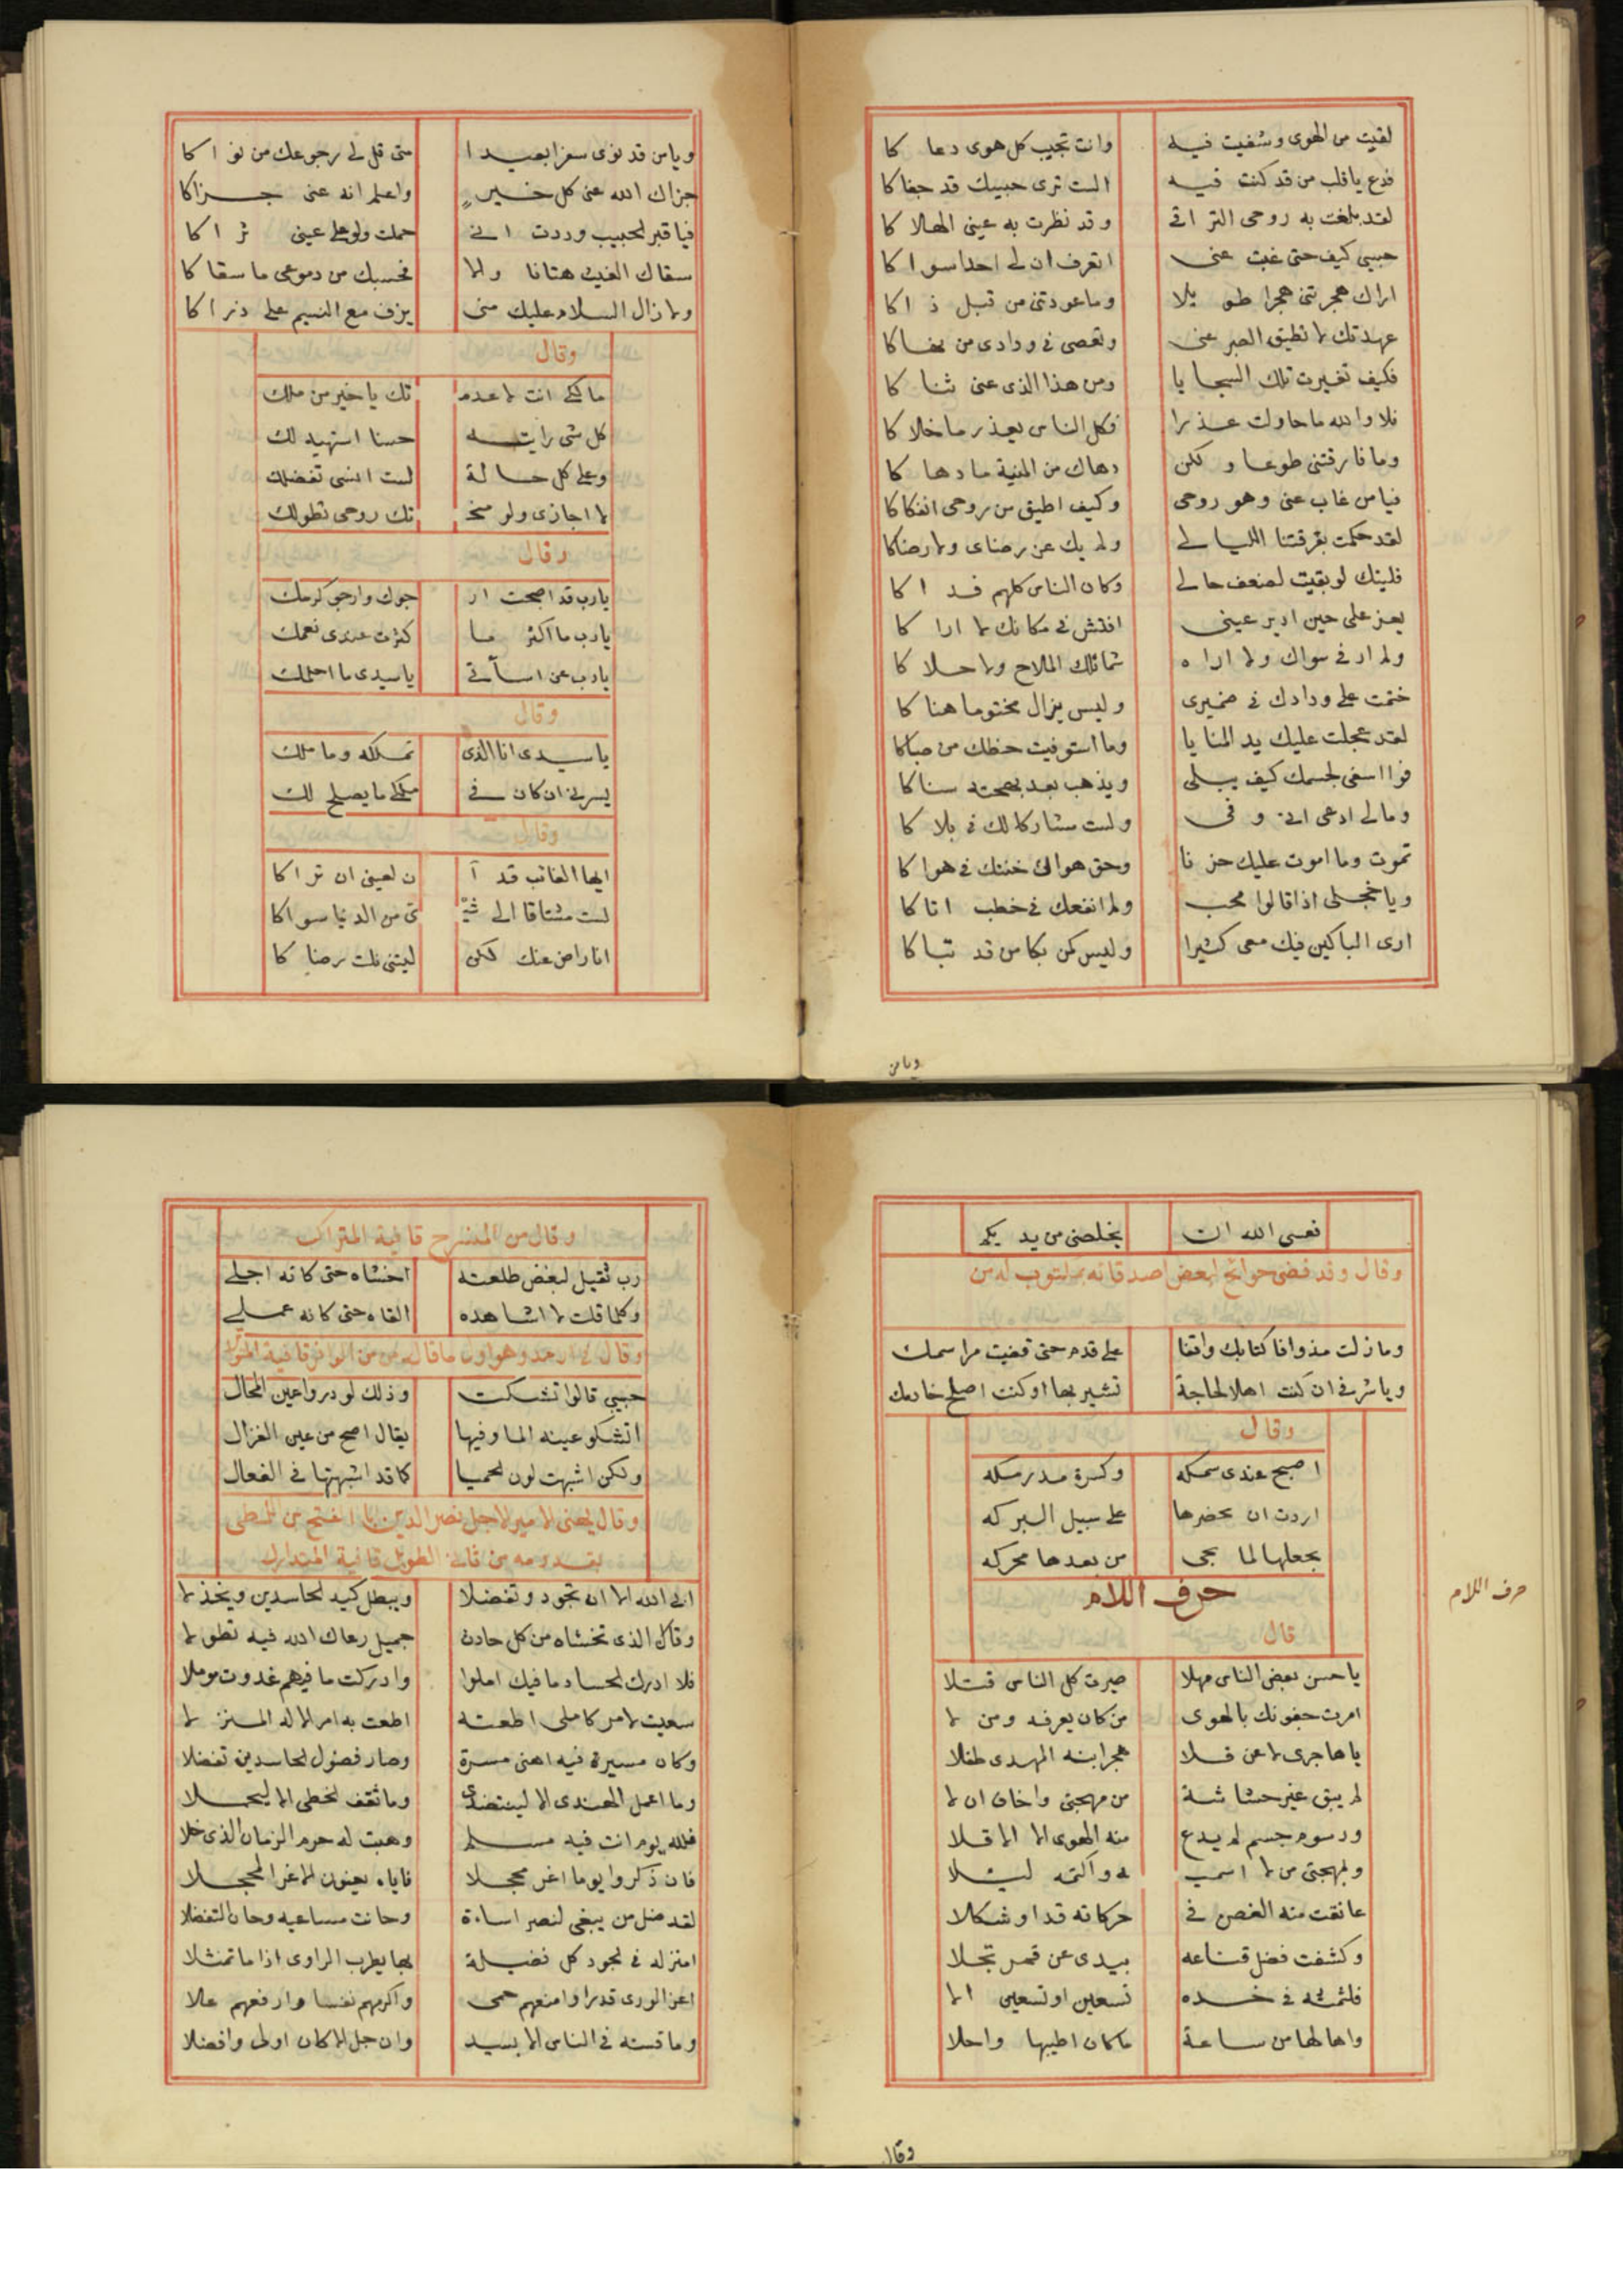 لقيت من الهوى وشفيت فيه وانت تجيب كل هوى دعا كا
فدع ياقلب من قد كنت فيه الست ترى حبيبك قد جفاكا
لقد بلغت به روحى التراقى وقد نظرت به عينى الهلا كا
حبيبى كيف حتى غبت عنى اتعرف ان لى احدا سوا كا
اراك هجرتنى هجرا طو يلا وما عودتنى من قبل ذ اكا
عهدتك لا تطيق الصبر عنى وتعصى فى ودادى من نهاكا
فكيف تغيرت تلك السجا يا ومن هذا الذى عنى ثنا كا
فلا والله ما حاولت عذرا فكل الناس يعذر ما خلا كا
وما فارقتنى طوعا و لكن دهاك من المنية ما دها كا
فيا من غاب عنى وهو روحى وكيف اطيق من روحى انفكاكا
لقد حكمت بفرقتنا الليالى ولم يك عن رضاى ولا رضاكا
فليتك لو بقيت لضعف حالى وكان الناس كلهم فد ا كا
يعز على حين ادير عينى افتش فى مكانك لا ارا كا
ولم ار فى سواك ولا اراه شمائلك الملاح ولا حلا كا
ختمت على ودادك فى ضميرى وليس يزال مختوما هنا كا
لقد عجلت عليك يد المنا يا وما استوفيت حظك من صباكا
فوا اسفى لجسمك كيف يبلى ويذهب بعد بهجته سنا كا
ومالى ادعى انى و فى ولست مشاركا لك فى بلا كا
تموت وما اموت عليك حز نا وحق هواك خنتك فى هوا كا
ويا خجلى اذا قالوا محب ولم انفعك فى خطب اتا كا
ارى الباكين فيك معى كثيرا وليس كمن بكا من قد تبا كا
ويا من
ويا من قد نوى سفرا بعيد ا متى قل لى رجوعك من نو ا كا
جزاك الله عنى كل خير واعلم انه عنى جزاكا
فيا قبر الحبيب وددت انى حملت ولو على عينى ثر ا كا
سقاك الغيث هتانا والا فحسبك من دموعى ما سقا كا
ولا زال السلام عليك منى يزف مع النسيم على ذر ا كا
وقال
مالكى انت لا عدم تك يا خير من ملك
كل شى رايته حسنا استهيه لك
وعلى كل حالة لست انسى تفضلك
لا اجازى ولو منح تك روحى تطولك
وقال
يارب قد اصبحت ار جوك وارجو كرمك
يارب ما اكثر ما كثرت عندى نعمك
يارب عن اسآتى ياسيدى ما احلمك
وقال
ياسيدى انا الذى تملكه وما ملك
يسرنى ان كان فى ملكى ما يصلح لك
وقال
ايها الغائب قد آ ن لعينى ان تر اكا
لست مشتاقا الى شىٔ ئ من الدنيا سواكا
انا راض عنك لكن ليتنى نلت رضا كا
فعسى الله ان يخلصنى من يد يكم
وقال وقد قضى حوائج لبعض اصدقائه
وما زلت مذ وافا كتابك واقفا على قدم حتى قضيت مراسمك
ويا شرفى ان كنت اهلا لحاجة تشير بها او كنت اصلح خادمك
وقال
اصبح عندى سمكه وكسرة مدرمكه
اردت ان تحضرها على سبيل البركه
تجعلها لما يجى من بعدها محركه
حرف اللام
حرف اللام
قال
يا حسن بعض الناس مهلا صيرت كل الناس قتلا
امرت جفونك بالهوى من كان يعرفه ومن لا
يا هاجرى لا عن قلا هجر ابنه المهدى طفلا
لم يبق غير حشاشة من مهجتى واخاف ان لا
ورسوم جسم لم يدع منه الهوى الا الا قلا
وبمهجتى من لا اسمي ه واكتمه ليلا
عانقت منه الغصن فى حركاته قدا وشكلا
وكشفت فضل قناعه بيدى عن قمر تجلا
فلثمته فى خده تسعين او تسعين الا
واها لها من ساعة ما كان اطيبها واحلا
وقال
وقال من المنسرح قافية المتراكب
رب ثقيل لبغض طلعته اخشاه حتى كانه اجلى
وكلما قلت لا اشاهده القاه حتى كانه عملى
وقال فى ارمد وهو اول ما قاله من الوافر قافية المتواتر
حبيبى قالوا تشكت وذلك لو دروا عين المحال
اتشكو عينه الما وفيها يقال اصح من عين الغزال
ولكن اشبهت لون الحميا كما قد اشبهتها فى الفعال
وقال يهنى الامير الاجل نصر الدين ابا الفتح بن اللمطى
بقدومه من ثانى الطويل قافية المتدارك
ابى الله الا ان تجود وتفضلا ويبطل كيد الحاسدين ويخذ لا
وقاك الذى تخشاه من كل حادث جميل رعاك الله فيه تطو لا
فلا ادرك الحساد ما فيك املوا وادركت ما فيهم غدوت مؤملا
سعيت لامر كاملى اطعته اطعت به امر الاله المنز لا
وكان مسيرة فيه اهنى مسرة وصار فضول الحاسدين تفضلا
وما اعمل الهندى الا لينتضى وما ثقف الخطى الا ليحملا
فلله يوم انت فيه مسلم وهبت له جرم الزمان الذى خلا
فان ذكروا يوما اغر محجلا فاياه يعنون الاغر المحجلا
لقد ضل من يبغى لنصر اساءة وخانت مساعيه وحان التفضلا
له فى الجود كل فضيلة بها يطرب الراوى اذا ما تمثلا
اعز الورى قدرا وامنعهم حمى واكرمهم نفسا وارفعهم علا
وما قسته فى الناس الا بسيد وان جل الا كان اولى وافضلا